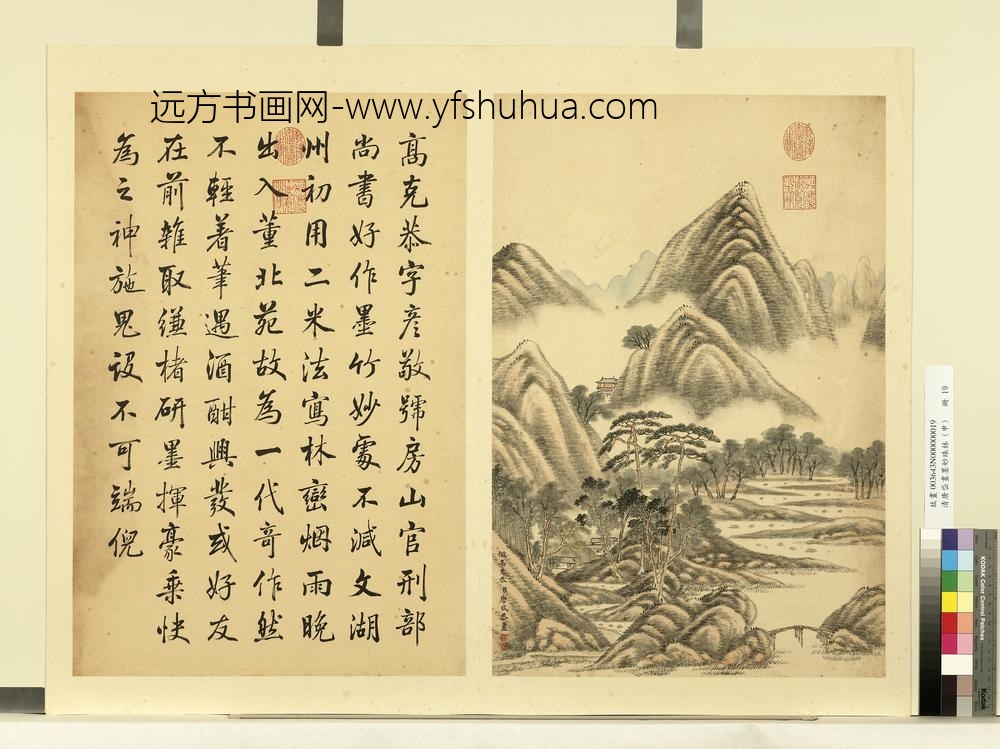 远方书画网-www.yfshuhua.com
高克恭字彦敬號房山官刑部
尚書好作墨竹妙處不減文湖
州初用二米法寫林巒烟雨晚
出入董北苑故為一代奇作然
不輕著筆遇酒酣興發或好友
在前雜取縑楮研墨揮豪乗快
為之神施鬼設不可端倪
故畫003643N000000019
清唐岱畫墨妙珠林（申） 冊 19
KODAK Color Control Patches
Kodak